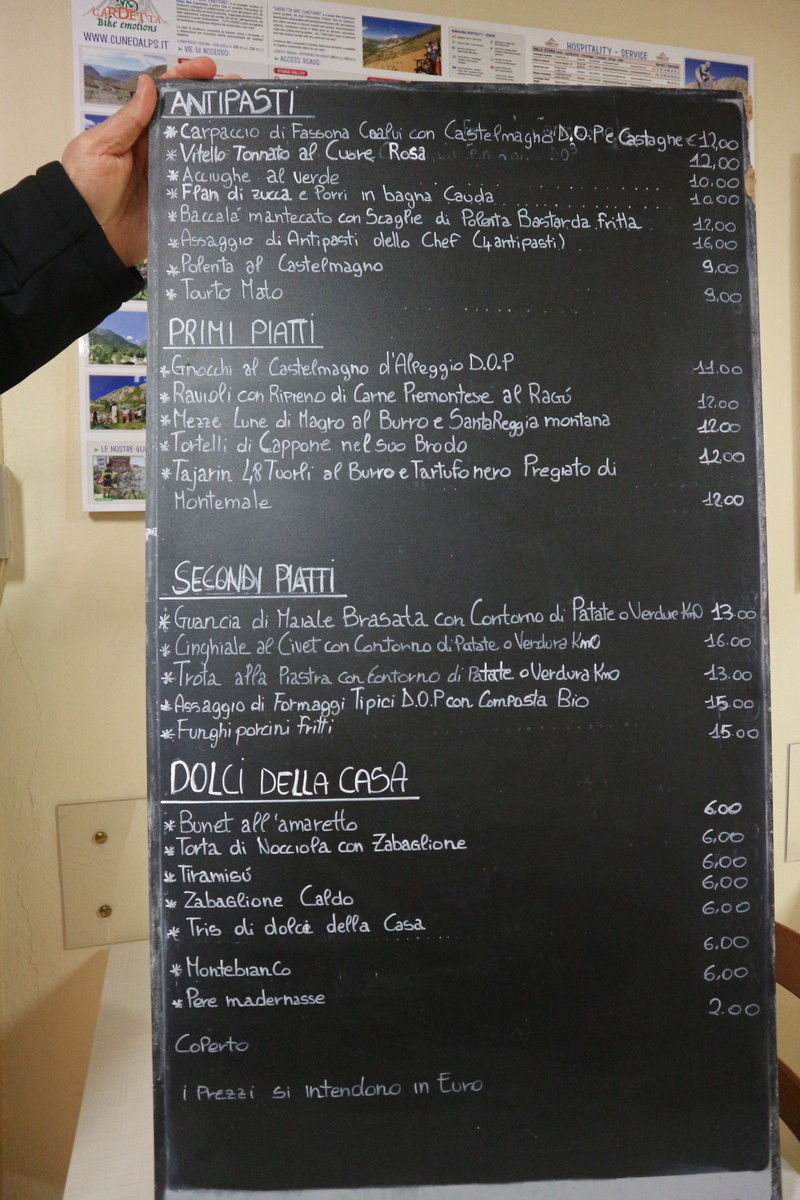 CARDETTA
Bike emotions
WWW.CUNEOALPS.IT
➤ VIE DI ACCESSO:
➤ ACCESS ROADS:
HOSPITALITY - SERVICE
➤ LE NOSTRE
ANTIPASTI
* Carpaccio di Fassona Coalvi con Castelmagno D.O.P e Castagne € 12,00
* Vitello Tonnato al Cuore Rosa 12,00
* Acciughe al verde 10.00
* Flan di zucca e Porri in bagna Cauda 10.00
* Baccalà mantecato con Scaglie di Polenta Bastarda fritta 12,00
* Assaggio di Antipasti dello Chef (4 antipasti) 16,00
* Polenta al Castelmagno 9,00
* Tourto Mato 9,00
PRIMI PIATTI
* Gnocchi al Castelmagno d'Alpeggio D.O.P 11.00
* Ravioli con Ripieno di Carne Piemontese al Ragú 12.00
* Mezze Lune di Magro al Burro e SantaReggia montana 12.00
* Tortelli di Cappone nel suo Brodo 12.00
* Tajarin 48 Tuorli al Burro e Tartufo nero Pregiato di
Montemale 12.00
SECONDI PIATTI
* Guancia di Maiale Brasata con Contorno di Patate o Verdure Km0 13.00
* Cinghiale al Civet con Contorno di Patate o Verdura Km0 16.00
* Trota alla Piastra con Contorno di Patate o Verdura Km0 13.00
* Assaggio di Formaggi Tipici D.O.P con Composta Bio 15.00
* Funghi porcini fritti 15.00
DOLCI DELLA CASA
* Bunet all'amaretto 6.00
* Torta di Nocciola con Zabaglione 6,00
* Tiramisú 6,00
* Zabaglione Caldo 6,00
* Tris di dolci della Casa 6,00
* Montebianco 6,00
* Pere madernasse 6,00
Coperto 2.00
i Prezzi si intendono in Euro